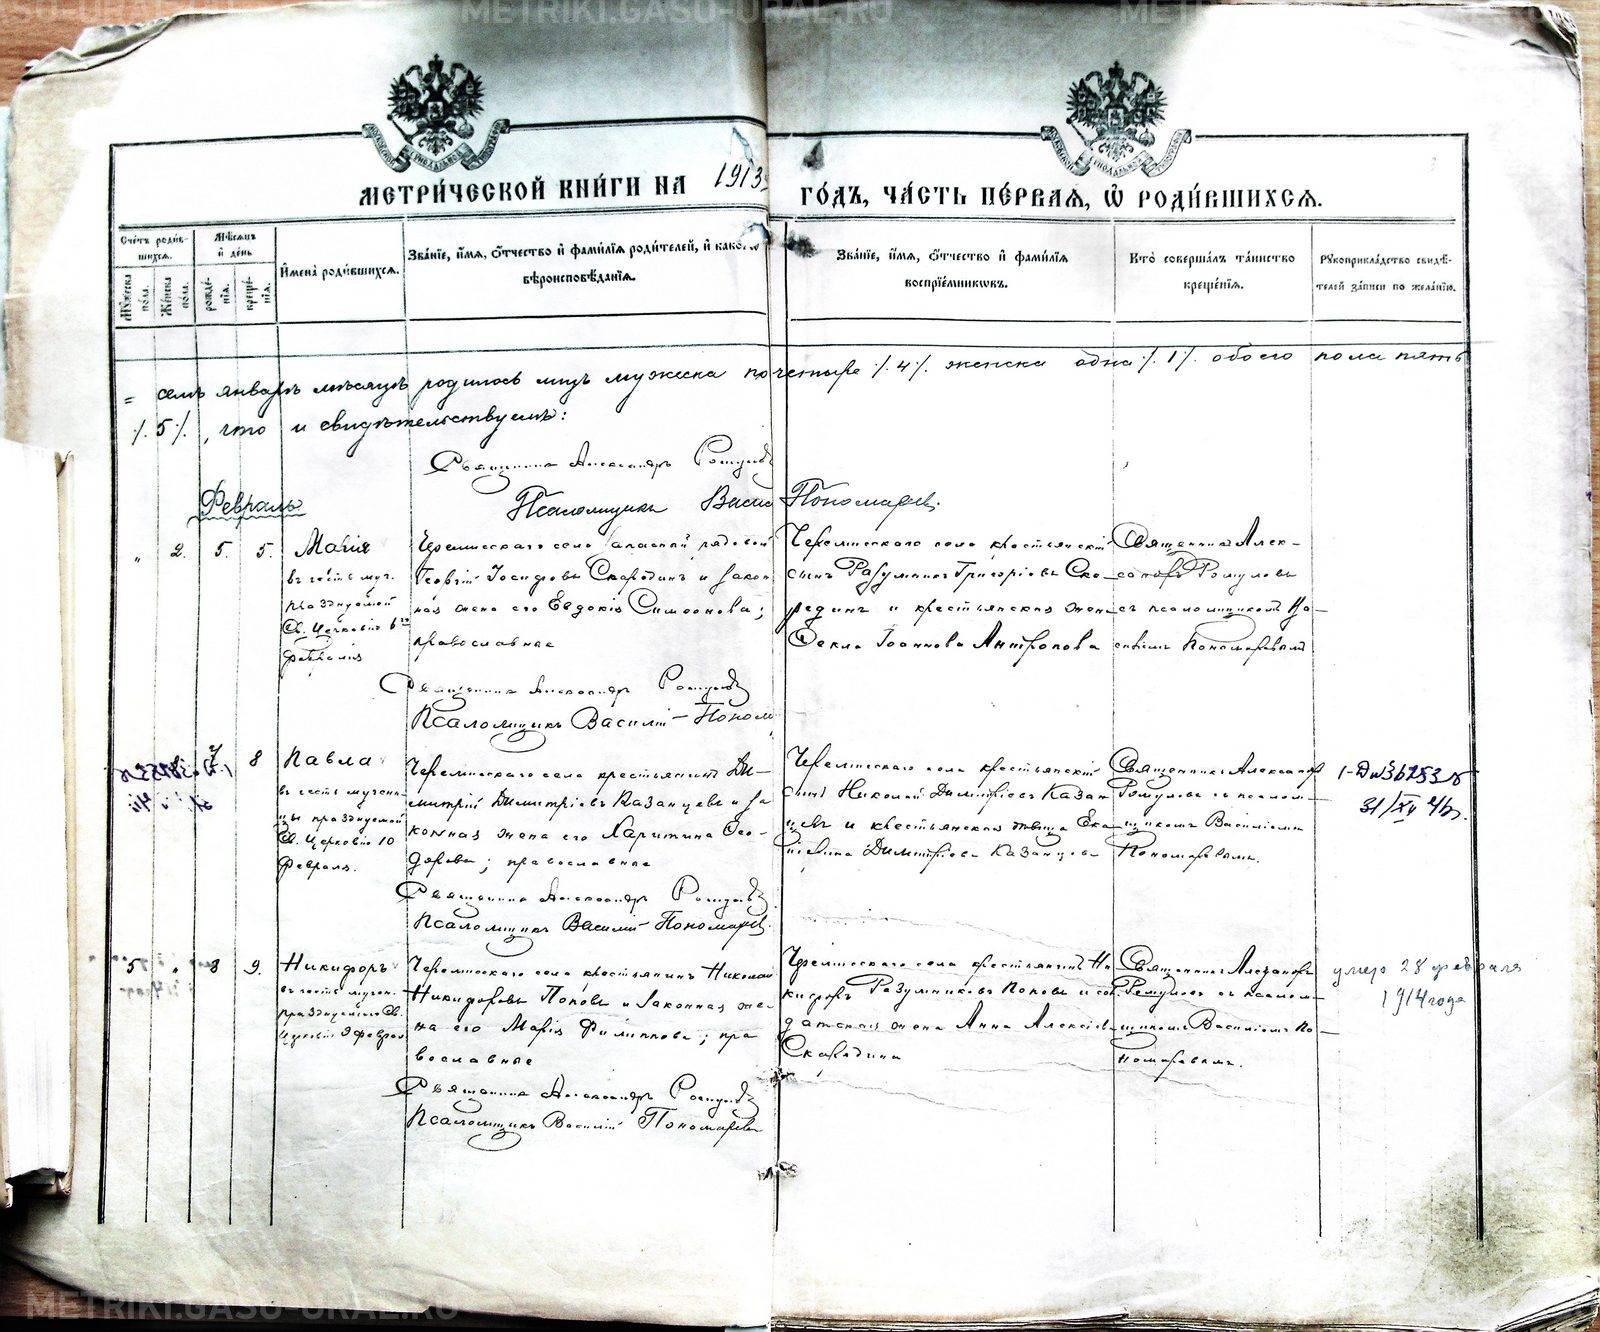 METRIKI.GASU-URAL.RU
МЕТРИ́ЧЕСКОЙ КНИ́ГИ НА 1913 ГО́ДЪ, ЧА́СТЬ ПЕ́РВАЯ, Ѽ РОДИ́ВШИХСЯ.
Сче́тъ роди́вшихся.
Мѣ́сяцъ и҆ де́нь
Мꙋ́жеска по́ла.
Же́нска по́ла.
рожде́нїѧ.
креще́нїѧ.
И҆мена̀ роди́вшихсѧ.
Зва́нїе, и҆́мѧ, ѻ҆́тчество и҆ фами́лїѧ роди́телей, и҆ како́гѡ
вѣроисповѣ́данїѧ.
Зва́нїе, и҆́мѧ, ѻ҆́тчество и҆ фами́лїѧ
воспрїе́мникѡвъ.
Кто̀ соверша́лъ та́инство
креще́нїѧ.
Рꙋкоприкла́дство свидѣ́-
телей за́писи по жела́нїю.
= январѣ мѣсяцѣ родилось мужеска по четыре /.4/. женска одна /.1/. обоего пола пять
/.5/., что и свидѣтельствуемъ:
Священникъ Александръ
Псаломщикъ Васи Пономаревъ
Февраль
" 2. 5. 5.
Марія
въ честь муч.
празднуемой
Св. Церковію 6го
февраля
Черемисскаго села рядовой
Георгій Іосифовъ Скорядинъ и закон
ная жена его Евдокія Симеонова;
православные
Черемисскаго села крестьянскій
сынъ Разумникъ Григоріевъ Ско-
рядинъ и крестьянская жена
Ѳекла Іоаннова Антропова
Священникъ Алек-
сандръ Ромуловъ
съ псаломщикомъ Ва-
силіемъ Пономаревымъ
Священникъ Александръ
Псаломщикъ Василій Поном
7 8
Павла
въ честь мучени-
цы празднуемой
Св. Церковію 10
февраля.
Черемисскаго села крестьянинъ Ди-
митрій Димитріевъ Казанцевъ и за
конная жена его Харитина Ѳео-
дорова; православные
Черемисскаго села крестьянскій
сынъ Николай Димитріевъ Казан
цевъ и крестьянская Ека-
терина Димитріева Казанцева
Священникъ Александръ
Ромуловъ съ псалом-
щикомъ Василіемъ
Пономаревымъ.
31/XII
Священникъ Александръ
Псаломщикъ Василій Пономаревъ
5 " 8 9.
Никифоръ
въ честь мучен.
празднуемаго Св.
Церковію 9 феврал
Черемисскаго села крестьянинъ Николай
Никифоровъ Поповъ и законная же-
на его Марія Филиппова; пра
вославные
Черемисскаго села крестьянинъ Ни
кифоръ Разумниковъ Поповъ и сол
датская жена Анна Алексіева
Скорядина
Священникъ Александръ
Ромуловъ съ псалом-
щикомъ Василіемъ По-
номаревымъ.
умер 28 февраля
1914 года
Священникъ Александръ
Псаломщикъ Василій Пономаревъ
METRIKI.GASU-URAL.RU